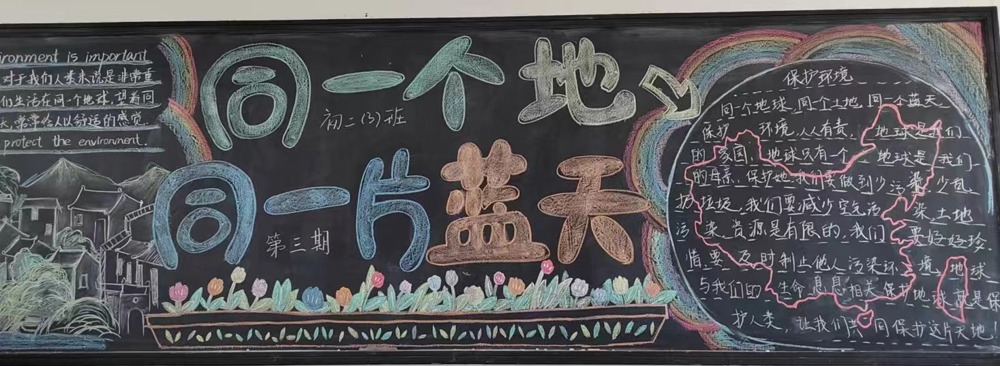 ironment is important
对于我们人类来说是非常重
们生活在同一个地球,望着同
天,常常给人以舒适的感觉
protect the environment.
同一个地
初二(3)班
同一片蓝天
第三期
保护环境
同一个地球,同个土地,同一个蓝天,
保护 环境,人人有责, 地球是我们
的家园,地球只有一个 地球是我们
的母亲,保护地球我们要做到少污染,少乱
扔垃圾,我们要减少空气污 染土地
污染,资源是有限的,我们 要好好珍
惜,要 及时制止他人污染环 境,地球
与我们的 生命息息相关,保护地球就是保
护人类,让我们共同保护这片天地